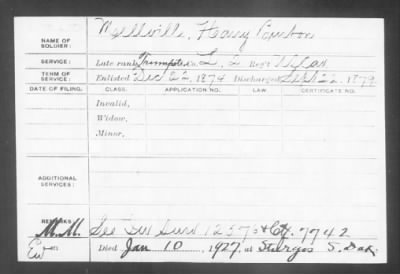 NAME OF SOLDIER: Mellville, Henry Burton
SERVICE: Late rank, Trumpeter Co. L, 2 Reg't U.S. Cav
TERM OF SERVICE: Enlisted Dec 22, 1874 Discharged Sept 22, 1879
DATE OF FILING. CLASS. APPLICATION NO. LAW. CERTIFICATE NO.
Invalid,
Widow,
Minor,
ADDITIONAL SERVICES:
REMARKS: M.M. See Sur Surv 12576 & Ctf. 7742
Died Jan 10, 1927, at Sturgis S. Dak.